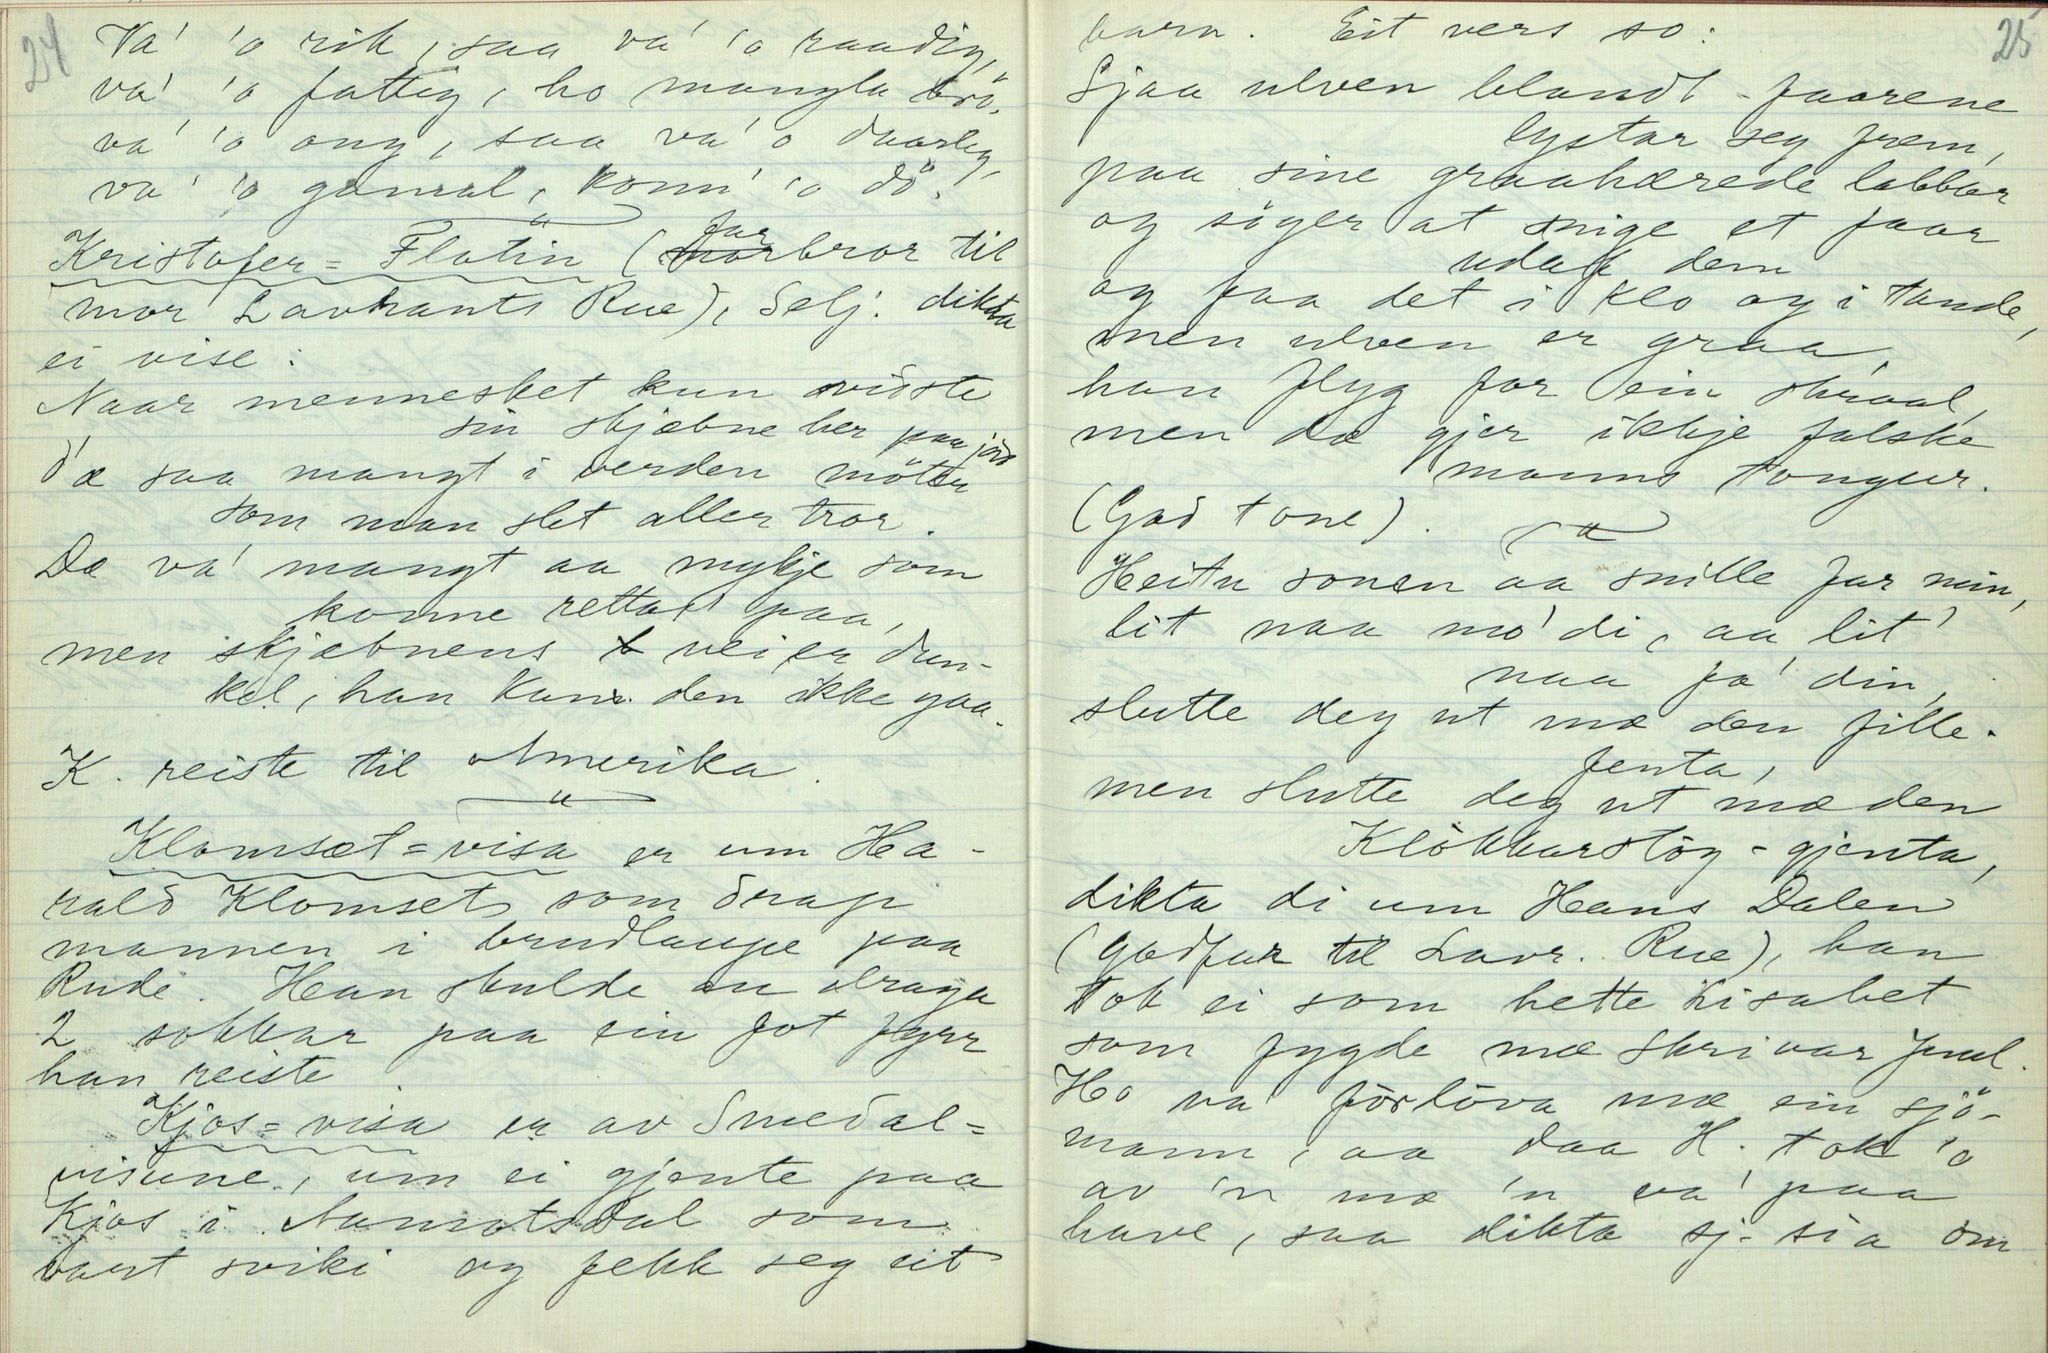 24
Va' 'o rik, saa va' 'o raadig,
va' 'o fattig, ho mangla brö,
va' 'o ong, saa va' 'o daarleg,
va' 'o gamal, konn' 'o dö.
Kristofer = Flatin (farbror til
mor Lavrants Rue), Selj. dikta
ei vise:
Naar mennesket kun vidste
sin skjæbne her paa jord
d'æ saa mangt i verden möter
som man slet aller tror.
Dæ va' mangt aa mykje som
konne rettast paa,
men skjæbnens vei er dun-
kel, han kan den ikke gaa.
K. reiste til Amerika.
Klomset = visa er um Ha-
rald Klomset som drap
mannen i brudlaupe paa
Rudi. Han skulde au draga
2 sokkar paa ein fot fyrr
han reiste.
Kjos = visa er av Smedal =
visune, um ei gjente paa
Kjos i Aamotsdal som
vart sviki og fekk seg eit
25
barn. Eit vers so:
Sjaa ulven blandt faarene
lystar seg frem,
paa sine graahærede labbar
og söger at snige et faar
udaf dem
og faa det i klo og i tande,
men ulven er graa,
han flyg for ein skraal,
men dæ gjer ikkje falske
manns tongur.
(God tone).
Heitu sonen aa snille far min,
lit naa mo' di, aa lit'
naa fa' din,
slutte deg ut mæ den fille-
jenta,
men slutte deg ut mæ den
Klökkarstög - gjenta,
dikta di um Hans Dalen
(godfar til Lavr. Rue), han
tok ei som hette Lisabet
som fygde mæ skrivar Juul.
Ho va' förlöva mæ ein sjö-
mann, aa daa H. tok 'o
av 'n mæ 'n va' paa
have, saa dikta sj. sia om